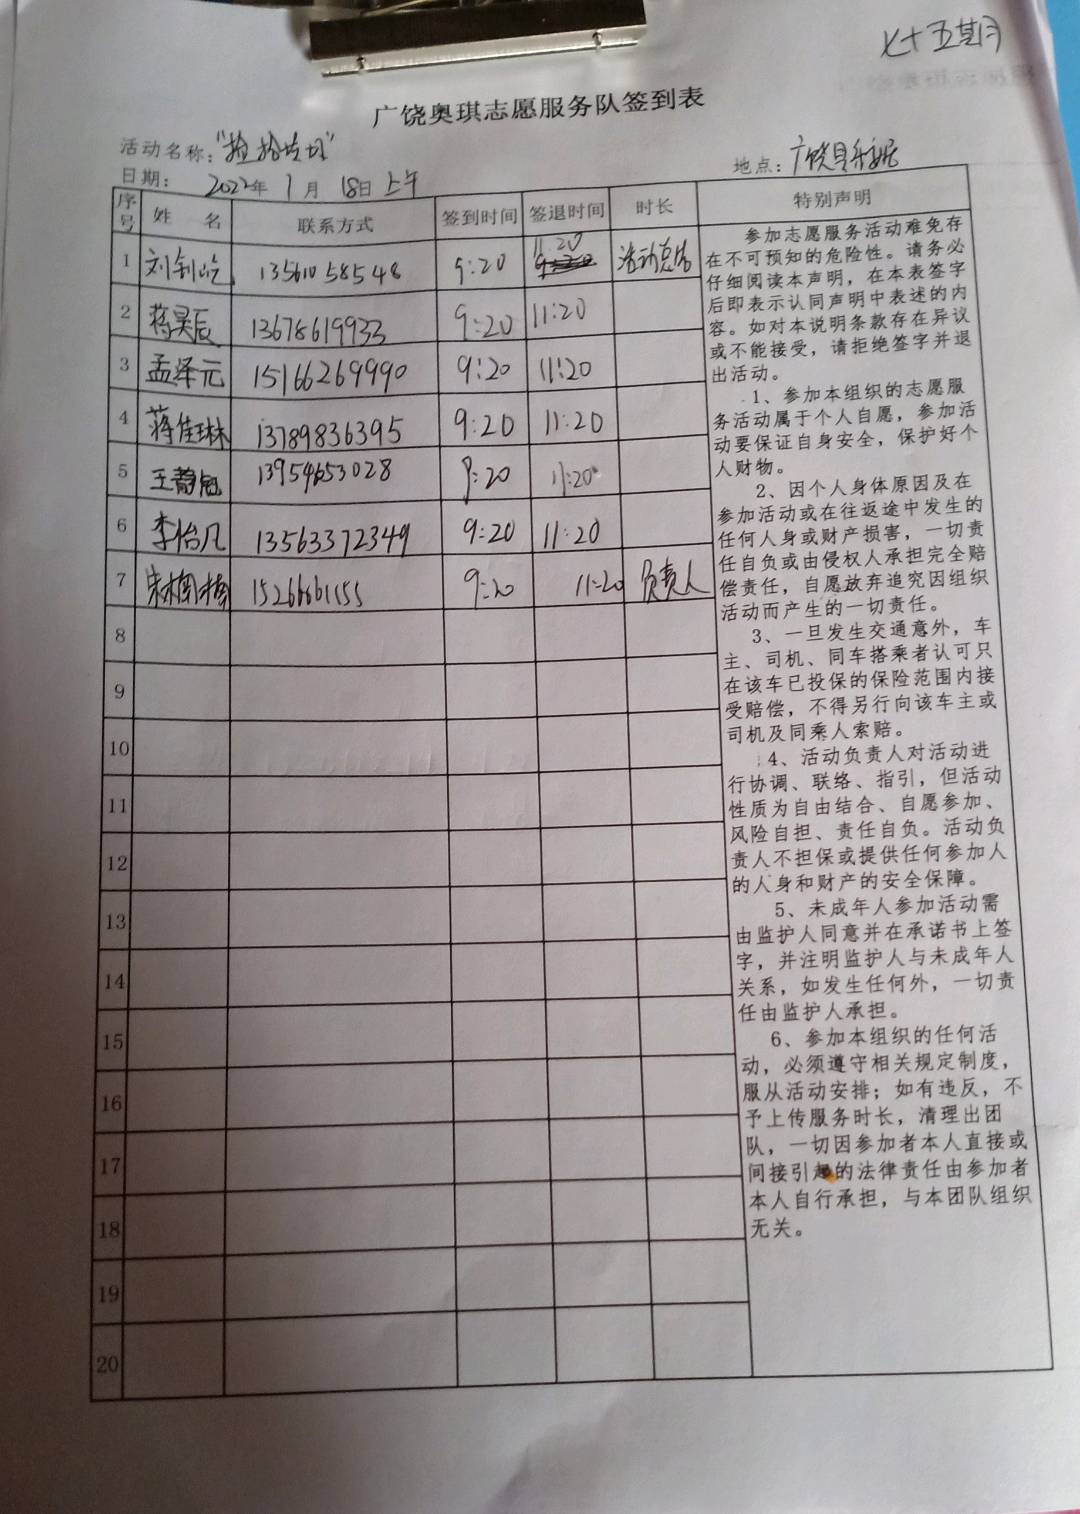 七十五期
广饶奥琪志愿服务队签到表
活动名称："捡拾垃圾"
地点：广饶县乐安
日期： 2022年 1月 18日 上午
序号 姓 名 联系方式 签到时间 签退时间 时长 特别声明
1 刘钊屹 13561058548 9:20 11:20 活动总结
2 蒋昊辰 13678619933 9:20 11:20
3 孟泽元 15166269990 9:20 11:20
4 蒋佳琳 13789836395 9:20 11:20
5 王静 13954653028 9:20 11:20
6 李怡凡 13563372349 9:20 11:20
7 朱梅梅 15266661155 9:20 11:20 负责人
8
9
10
11
12
13
14
15
16
17
18
19
20
参加志愿服务活动难免存
在不可预知的危险性。请务必
仔细阅读本声明，在本表签字
后即表示认同声明中表述的内
容。如对本说明条款存在异议
或不能接受，请拒绝签字并退
出活动。
1、参加本组织的志愿服
务活动属于个人自愿，参加活
动要保证自身安全，保护好个
人财物。
2、因个人身体原因及在
参加活动或在往返途中发生的
任何人身或财产损害，一切责
任自负或由侵权人承担完全赔
偿责任，自愿放弃追究因组织
活动而产生的一切责任。
3、一旦发生交通意外，车
主、司机、同车搭乘者认可只
在该车已投保的保险范围内接
受赔偿，不得另行向该车主或
司机及同乘人索赔。
4、活动负责人对活动进
行协调、联络、指引，但活动
性质为自由结合、自愿参加、
风险自担、责任自负。活动负
责人不担保或提供任何参加人
的人身和财产的安全保障。
5、未成年人参加活动需
由监护人同意并在承诺书上签
字，并注明监护人与未成年人
关系，如发生任何外，一切责
任由监护人承担。
6、参加本组织的任何活
动，必须遵守相关规定制度，
服从活动安排；如有违反，不
予上传服务时长，清理出团
队，一切因参加者本人直接或
间接引起的法律责任由参加者
本人自行承担，与本团队组织
无关。